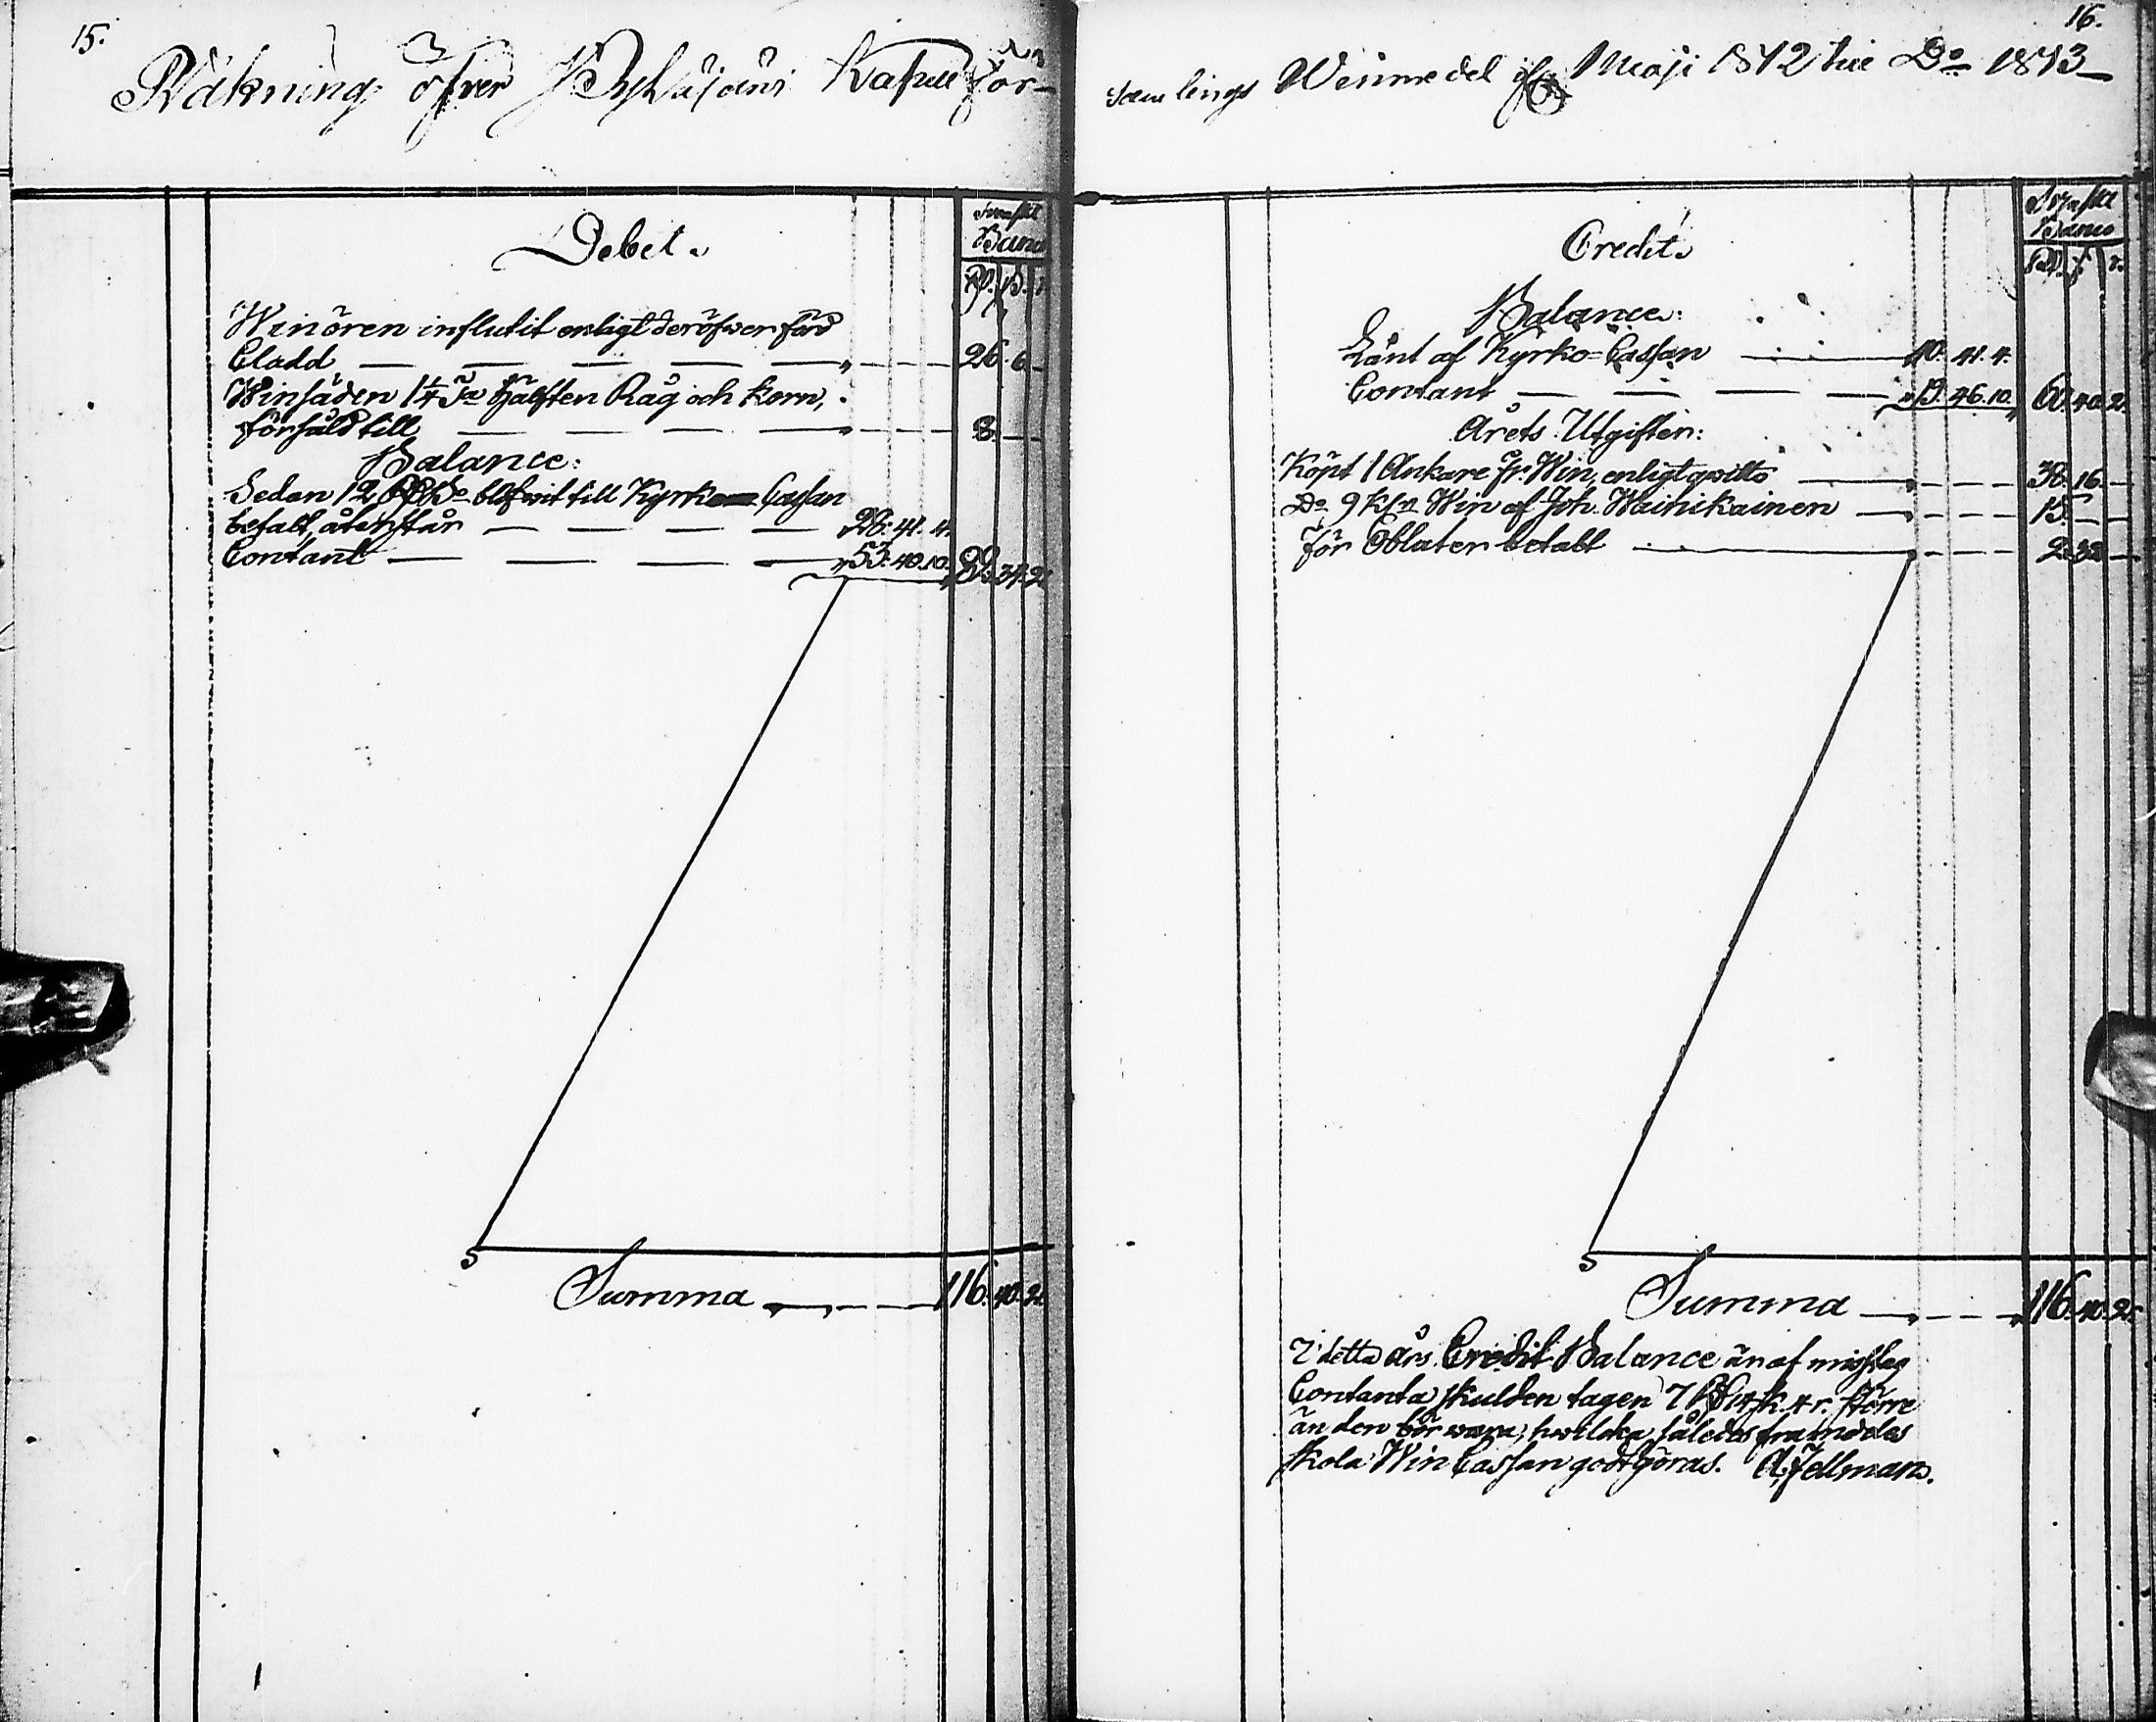 15.
Räkning öfver Pyhäjoens Kapell för-
Debet.
Swenskt
Banco
Rd. s. r.
Winören influtit enligt deröfwer förd
Cladd — — — — — 26. 6. —
Winsäden 1 4 Ta hälften Råg och Korn,
försåld till — — — — 8. — —
Balance:
Sedan 12 Rd Bo blifwit till Kyrko Cassan
betalt, återstår — — — — 28. 41. 4.
Contant — — — — 53. 40. 10. 82. 34. 2.
Summa — — — 116. 40. 2.
16.
samlings Winmedel ifrån Maji 1812 till Do 1813
Credit.
Swenskt
Banco
Rd. s. r.
Balance:
Lånt af Kyrko=Cassan — — 40. 41. 4.
Contant — — — — 19. 46. 10. 60. 40. 2.
Årets Utgifter:
Köpt 1 Ankare fr. Win, enligt qvitto — — 38. 16. —
Do 9 K:r Win af Joh. Wainikainen — — 15. — —
För Oblater betalt — — 2. 32. —
Summa — — — 116. 40. 2.
I detta års Credit Balance är af misstag
Contanta skulden tagen 7 Rd 14 sk. 4 r. större
än den bör wara, hwilka således framdeles
skola Win Cassan godtgöras. A. Fellman.